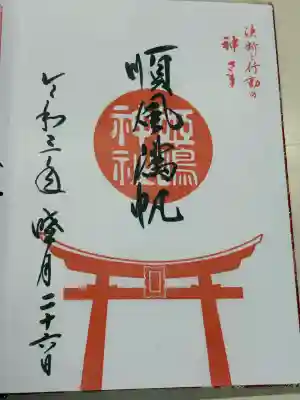 決断と行動の
神さま
順風満帆
神社
令和三年
月二十六日